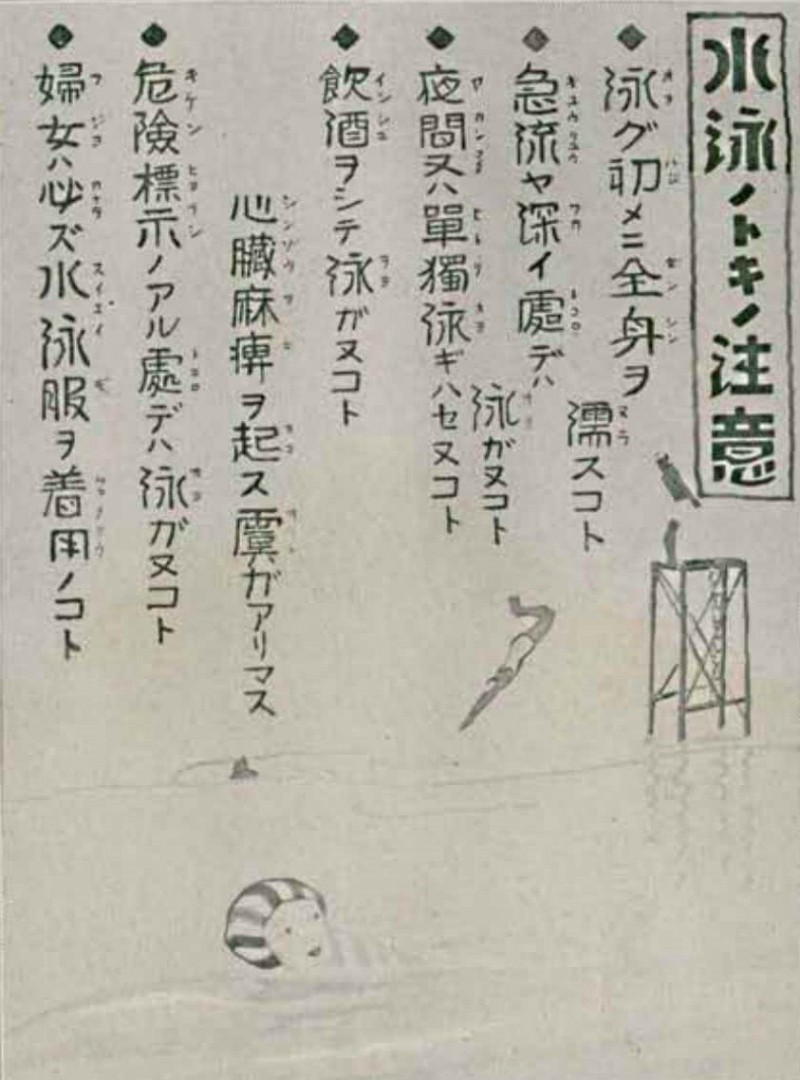 水泳ノトキノ注意
◆泳グ初メニ全身ヲ
濡スコト
◆急流ヤ深イ處デハ
泳ガヌコト
◆夜間又ハ單獨泳ギハセヌコト
◆飲酒ヲシテ泳ガヌコト
心臓麻痺ヲ起ス虞ガアリマス
◆危險標示ノアル處デハ泳ガヌコト
◆婦女ハ必ズ水泳服ヲ着用ノコト